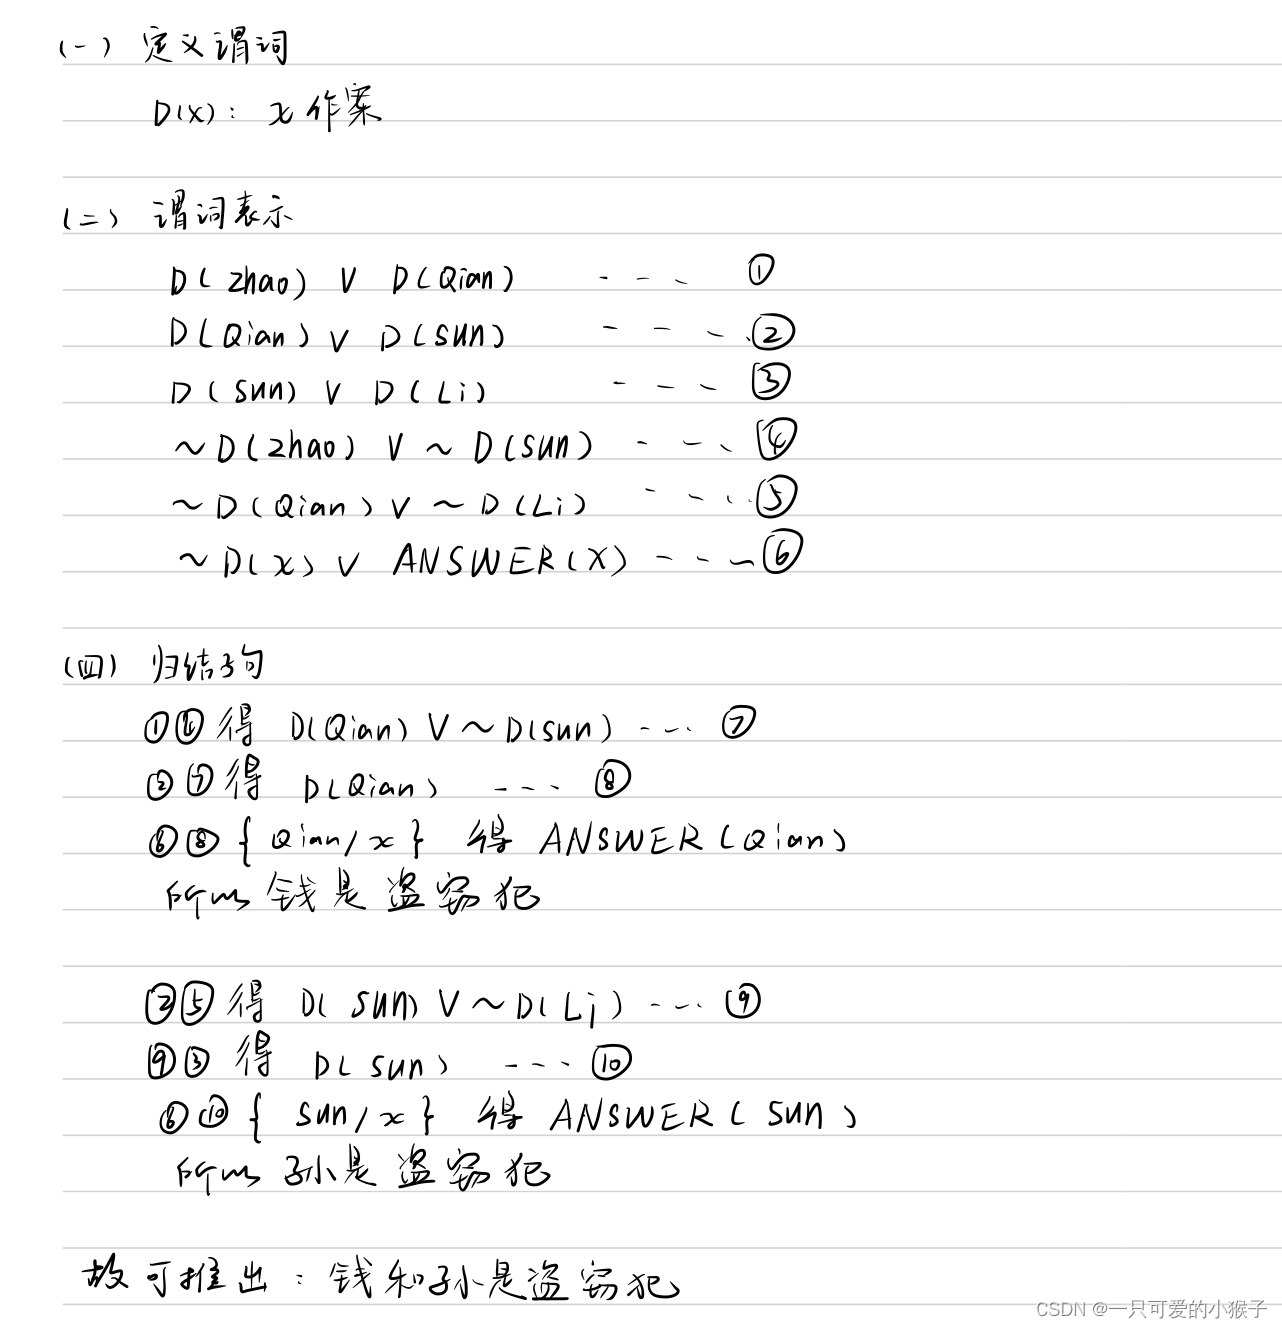 (一) 定义谓词
D(x): x 作案
(二) 谓词表示
D(zhao) ∨ D(Qian) --- ①
D(Qian) ∨ D(sun) ---- ②
D(sun) ∨ D(Li) --- ③
~D(zhao) ∨ ~D(sun) --- ④
~D(Qian) ∨ ~D(Li) ---- ⑤
~D(x) ∨ ANSWER(x) --- ⑥
(四) 归结子句
①④得 D(Qian) ∨ ~D(sun) --- ⑦
②⑦得 D(Qian) --- ⑧
⑥⑧{Qian/x} 得 ANSWER(Qian)
所以 钱是盗窃犯
②⑤得 D(sun) ∨ ~D(Li) --- ⑨
⑨③得 D(sun) --- ⑩
⑥⑩{sun/x} 得 ANSWER(sun)
所以 孙是盗窃犯
故可推出：钱和孙是盗窃犯
CSDN @一只可爱的小猴子